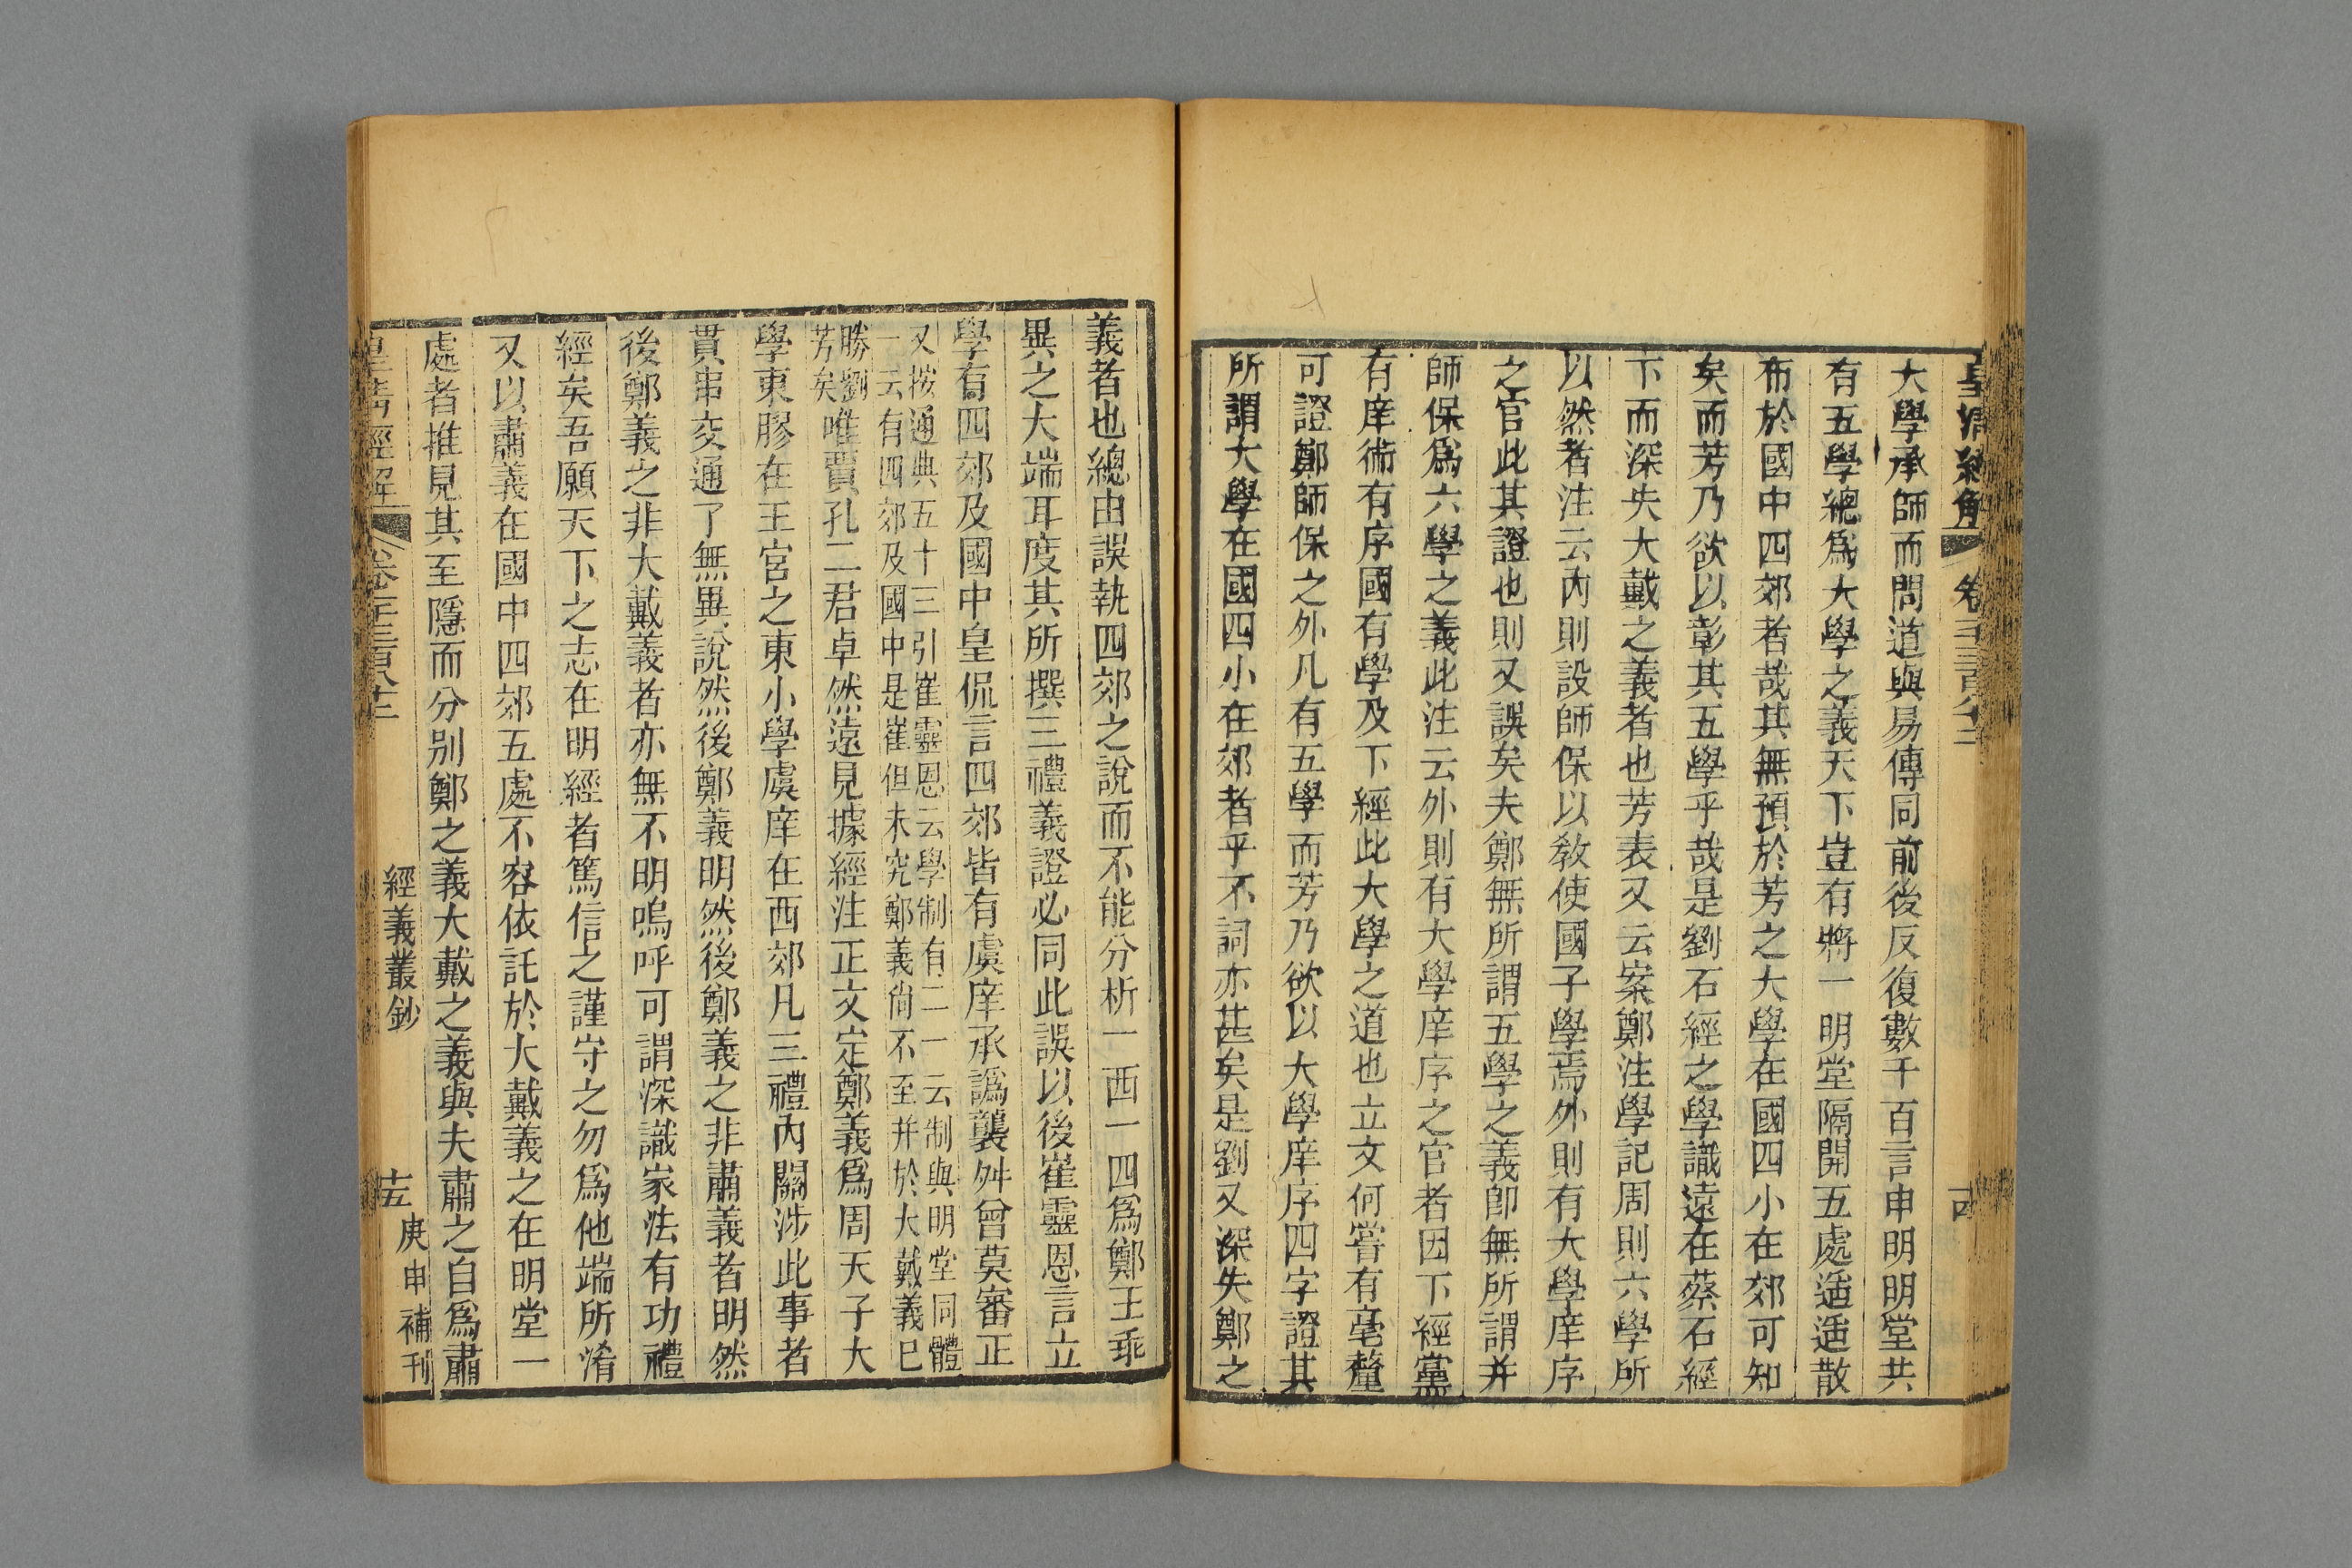 皇清經解 卷千三百八十二 十四
大學承師而問道與易傳同前後反復數千百言申明明堂共
有五學總爲大學之義天下豈有將一明堂隔開五處逓逓散
布於國中四郊者哉其無預於芳之大學在國四小在郊可知
矣而芳乃欲以彰其五學乎哉是劉石經之學識遠在蔡石經
下而深失大戴之義者也芳表又云案鄭注學記周則六學所
以然者注云內則設師保以敎使國子學焉外則有大學庠序
之官此其證也則又誤矣夫鄭無所謂五學之義卽無所謂并
師保爲六學之義此注云外則有大學庠序之官者因下經黨
有庠術有序國有學及下經此大學之道也立文何嘗有毫釐
可證鄭師保之外凡有五學而芳乃欲以大學庠序四字證其
所謂大學在國四小在郊者乎不詞亦甚矣是劉又深失鄭之
義者也總由誤執四郊之說而不能分析一西一四爲鄭王乖
異之大端耳度其所撰三禮義證必同此誤以後崔靈恩言立
學有四郊及國中皇侃言四郊皆有虞庠承譌襲舛曾莫審正
又按通典五十三引崔靈恩云學制有二一云制與明堂同體
一云有四郊及國中是崔但未究鄭義尙不至并於大戴義已
勝劉
芳矣
唯賈孔二君卓然遠見據經注正文定鄭義爲周天子大
學東膠在王宮之東小學虞庠在西郊凡三禮內關涉此事者
貫串交通了無異說然後鄭義明然後鄭義之非肅義者明然
後鄭義之非大戴義者亦無不明嗚呼可謂深識家法有功禮
經矣吾願天下之志在明經者篤信之謹守之勿爲他端所淆
又以肅義在國中四郊五處不容依託於大戴義之在明堂一
處者推見其至隱而分別鄭之義大戴之義與夫肅之自爲肅
皇淸經解 卷千三百八十二 經義叢鈔 十五 庚申補刊